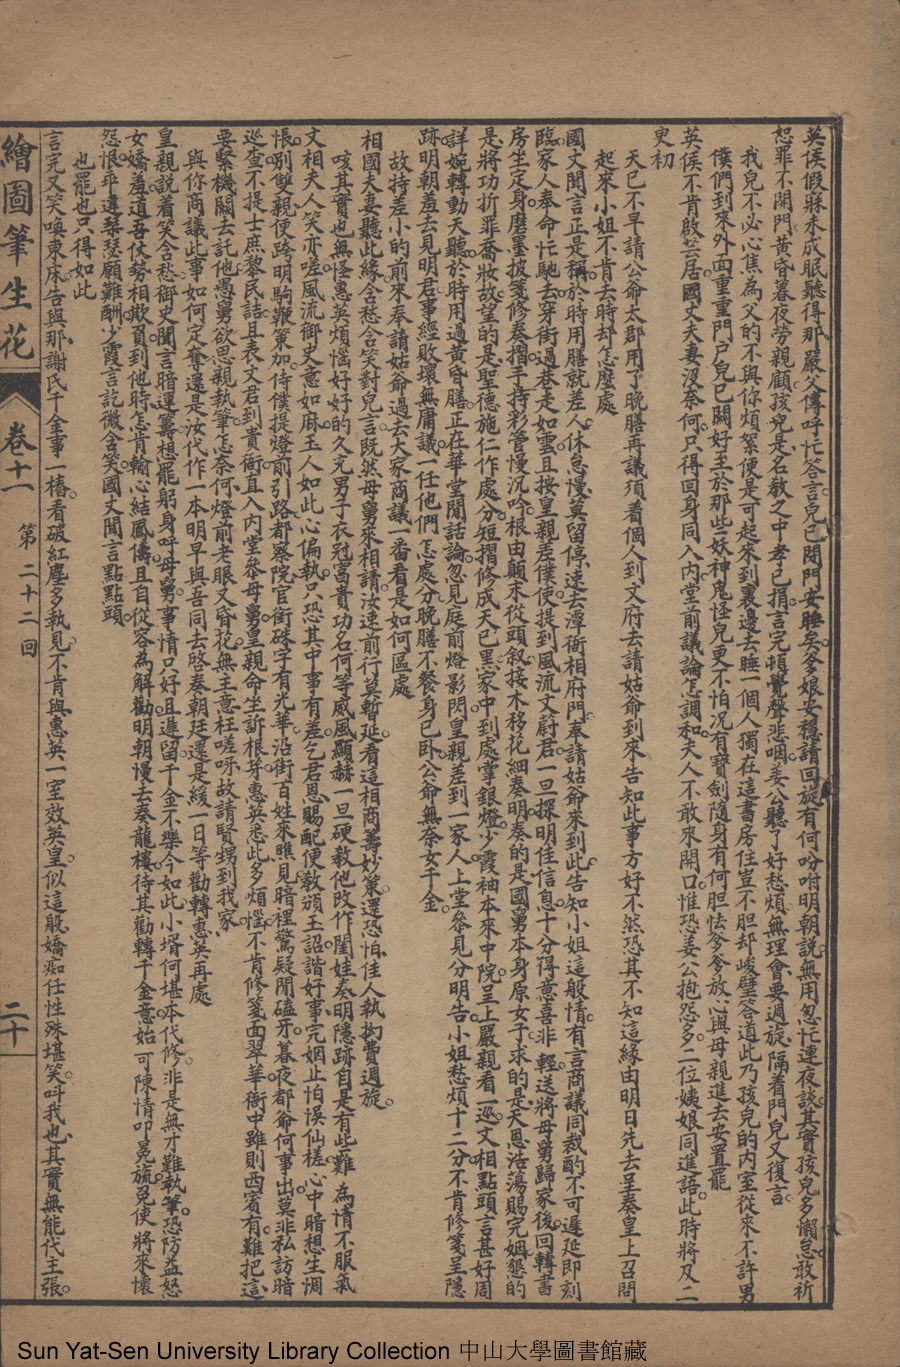 英侯假寐未成眠聽得那嚴父傳呼忙答言兒已閉門安睡矣爹娘安穩請回旋有何吩咐明朝說無用忽忙連夜談其實孩兒多懶怠敢祈
恕罪不開門黃昏暮夜勞親顧孩兒是名教之中孝已捐言完頓覺聲悲咽姜公聽了好愁煩無理會要週旋隔着門兒又復言
我兒不必心焦為父的不與你煩絮便是可起來到裏邊去睡一個人獨在這書房住豈不胆却峻壁答道此乃孩兒的內室從來不許男
僕們到來外面重重門戶兒已關好至於那些妖神鬼怪兒更不怕况有寶劍隨身有何胆怯爹爹放心與母親進去安置罷
英侯不肯啟芸居國丈夫妻沒奈何只得回身同入內堂前議論怎調和夫人不敢來開口惟恐姜公抱怨多二位姨娘同進語此時將及二
更初
天已不早請公爺太郡用了晚膳再議須看個人到文府去請姑爺到來告知此事方好不然恐其不知這緣由明日先去呈奏皇上召問
起來小姐不肯去時却怎麼處
國丈聞言正是稱於時用膳就差人休怠慢莫留停速去潭衙相府門奉請姑爺來到此告知小姐這般情有言商議同裁酌不可遲延即刻
臨家人奉命忙馳去穿街過巷走如雲且接皇親差僕使提到風流文蔚君一旦探明佳信息十分得意喜非輕送將母舅歸家後回轉書
房坐定身磨墨披箋修奏摺手持彩管慢沉吟根由顛末從頭叙接木移花細奏明奏的是國舅本身原女子求的是天恩浩蕩賜完姻懇的
是將功折罪喬妝故望的是聖德施仁作處分短摺修成天已黑家中到處掌銀燈少霞袖本來中院呈上嚴親看一巡文相點頭言甚好周
詳婉轉動天聽於時用過黃昏膳正在華堂閒話論忽見庭前燈影閃皇親差到一家人上堂參見分明告小姐愁煩十二分不肯修箋呈隱
跡明朝羞去見明君事經敗壞無庸議一任他們怎處分晚膳不餐身已卧公爺無奈女千金
故持差小的前來奉請姑爺過去大家商議一番看是如何區處
相國夫妻聽此緣含愁含笑對兒言既然母舅來相請汝速前行莫暫延看這相商籌妙策還恐怕佳人執拗費週旋
咳其實也無怪惠英煩惱好好的久充男子衣冠富貴功名何等威風顯赫一旦硬教他改作閨娃奏明隱跡自是有些難為情不服氣
文相夫人笑亦嗟風流御史意如麻玉人如此心偏執只恐其中事有差乞君恩賜配便教頒玉詔諧好事完姻止怕悞仙槎心中暗想生凋
悵別雙親便跨明駒鞭策加侍僕提燈前引路都察院官銜硃字有光華沿街百姓來瞧見暗裡驚疑閒磕牙暮夜都爺何事出莫非私訪暗
巡查不提士庶黎民語且表文君到貴衙直入內堂參母舅皇親命坐訴根芽惠英悉此多煩惱不肯修箋面翠華衙中雖則西賓有難把這
要緊機關去託他愚舅欲思親執筆怎奈何燈前老眼又昏花無主意枉嗟呀故請賢甥到我家
與你商議此事如何定奪還是汝代作一本明早與吾同去啓奏朝廷還是緩一日等勸轉惠英再處
皇親說着笑含愁御史聞言暗運籌想罷躬身呼母舅事情只好且遲留千金不樂今如此小壻何堪本代修非是無才難執筆恐防益怒
女嬌羞道吾仗勢相欺負到他時怎肯輸心結鳳儔且自從容為解勸明朝慢去奏龍樓待其勸轉千金意始可陳情叩冕旒免使將來懷
怨恨乖違琴瑟願難酬少霞言訖微含笑國丈聞言點點頭
也罷也只得如此
言完又笑喚東床告與那謝氏千金事一樁看破紅塵多執見不肯與惠英一室效英皇似這般嬌痴任性殊堪笑呌我也其實無能代主張
繪圖筆生花 卷十一 第二十二回 二十
Sun Yat-Sen University Library Collection 中山大學圖書館藏